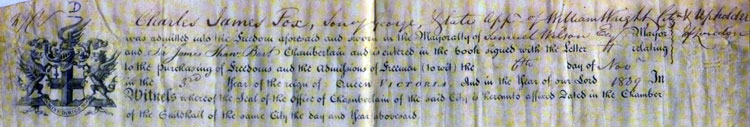 Charles James Fox, Son of George, late app. of William Wright Cit. & Upholder of London
was admitted into the Freedom aforesaid and sworn in the Mayoralty of Samuel Wilson Esq. Mayor
and Sir James Shaw Bart Chamberlain and is entered in the book signed with the Letter relating
to the Purchasing of Freedoms and the Admissions of Freemen (to wit) the 6th day of Nov
in the 3rd Year of the reign of QUEEN VICTORIA. And in the Year of our Lord 1839 In
Witness whereof the Seal of the Office of Chamberlain of the said City is hereunto affixed Dated in the Chamber
of the Guildhall of the same City the day and Year abovesaid.